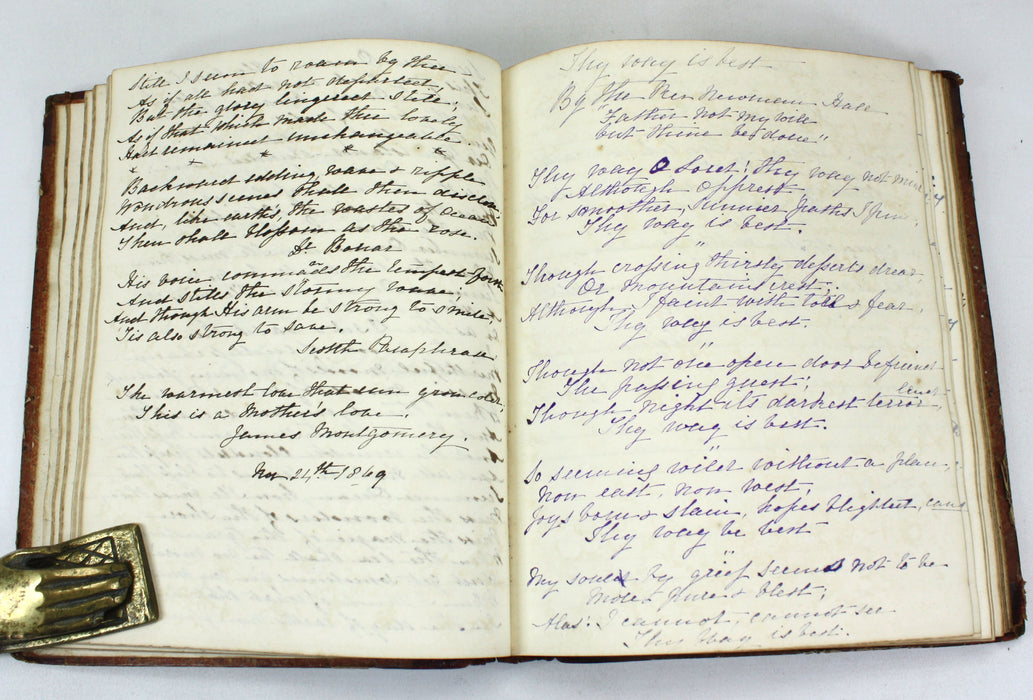 Still I seem to roam by thee
As if all had not departed,
But the glory lingered still;
As if that which made thee lovely
Had remained unchangeable.
× × × ×
Backward rolling, wave & ripple
Wondrous scenes shall then disclose
And, like earth's, the wastes of ocean
Then shall blossom as the rose.
Dr Bonar
His voice commands the tempest forth
And stills the stormy wave;
And though His arm be strong to smite,
'Tis also strong to save.
Scotch Paraphrase
The warmest love that can grow cold,
This is a Mother's love.
James Montgomery.
Nov 24th 1869
Thy way is best
By the Rev Newman Hall
"Father not my will
but thine be done"
Thy way O Lord! Thy way not mine
Although opprest,
For smoother, sunnier paths I pine,
Thy way is best.
Though crossing thirsty desserts drear
Or mountains crest;
Although I faint with toil & fear,
Thy way is best.
Though not one open door befriend
The passing guest;
Though night its darkest terror lend,
Thy way is best.
So seeming wild without a plan,
Now east, now west,
Joys born & slain, hopes blighted, can
Thy way be best
My soul by grief seems not to be
More pure & blest;
Alas! I cannot, cannot see
Thy way is best.